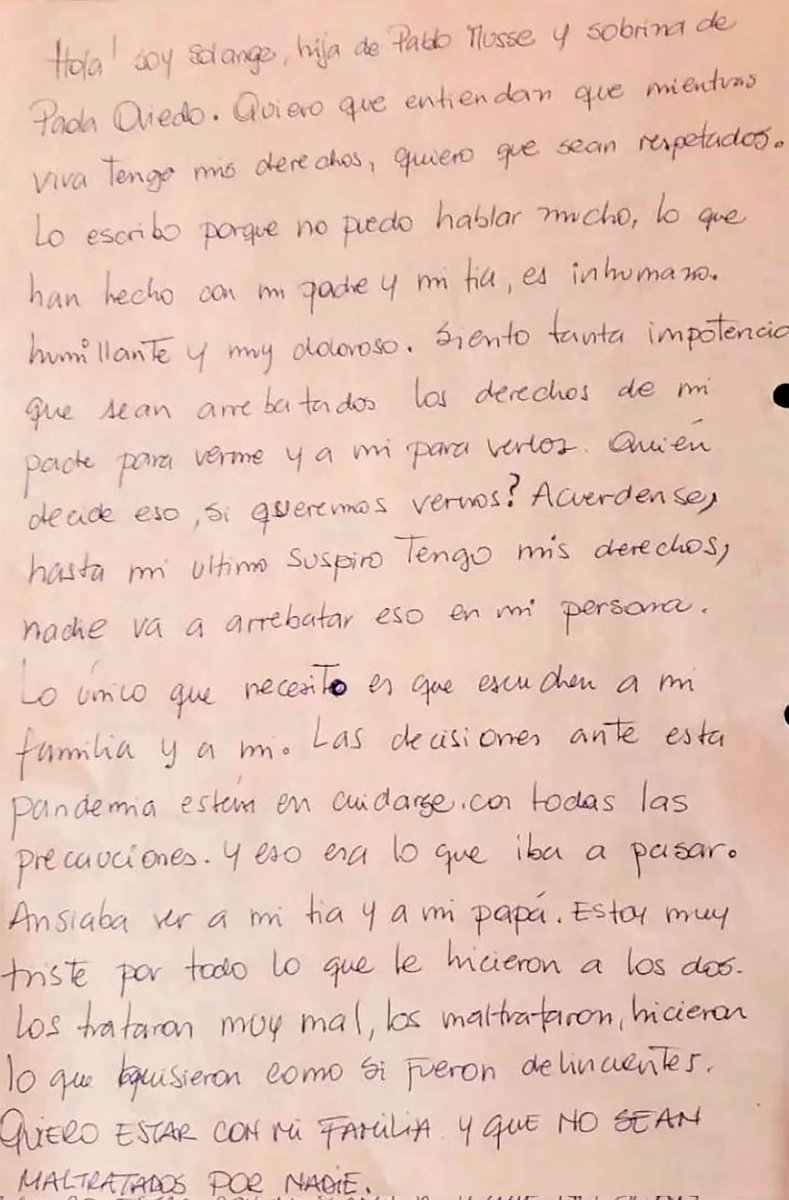 Hola! soy Solange, hija de Pablo Musse y sobrina de
Paola Oviedo. Quiero que entiendan que mientras
viva Tengo mis derechos, quiero que sean respetados.
Lo escribo porque no puedo hablar mucho, lo que
han hecho con mi padre y mi tia, es inhumano.
humillante y muy doloroso. Siento tanta impotencia
que sean arrebatados los derechos de mi
padre para verme y a mi para verlos. Quién
decide eso, si queremos vernos? Acuerdense,
hasta mi ultimo suspiro Tengo mis derechos,
nadie va a arrebatar eso en mi persona.
Lo único que necesito es que escuchen a mi
familia y a mi. Las decisiones ante esta
pandemia están en cuidarse.con todas las
precauciones. y eso era lo que iba a pasar.
Ansiaba ver a mi tia y a mi papá. Estoy muy
triste por todo lo que le hicieron a los dos.
Los trataron muy mal, los maltrataron, hicieron
lo que quisieron como si fueron delincuentes.
QUIERO ESTAR CON MI FAMILIA Y QUE NO SEAN
MALTRATADOS POR NADIE.